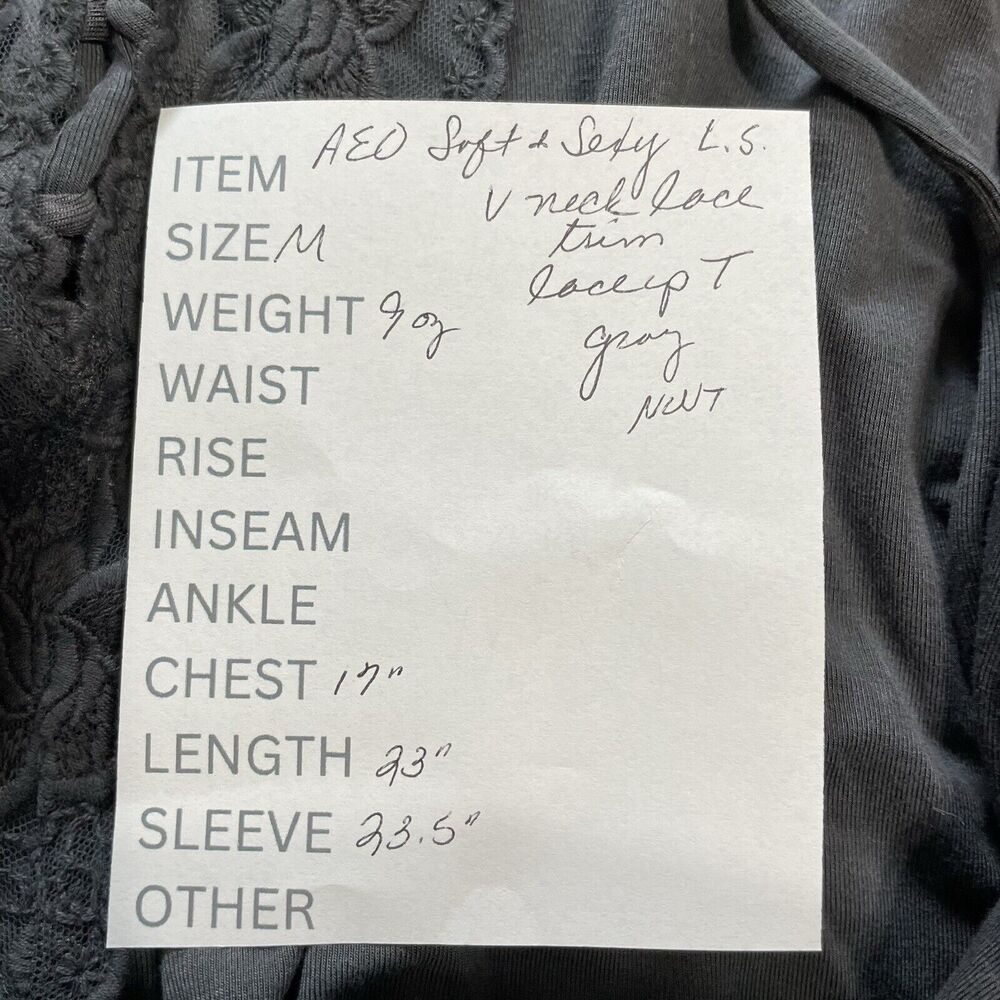 ITEM AEO Soft & Sexy L.S.
V neck lace
trim
lace up T
gray
NWT
SIZE M
WEIGHT 9 oz
WAIST
RISE
INSEAM
ANKLE
CHEST 17"
LENGTH 23"
SLEEVE 23.5"
OTHER